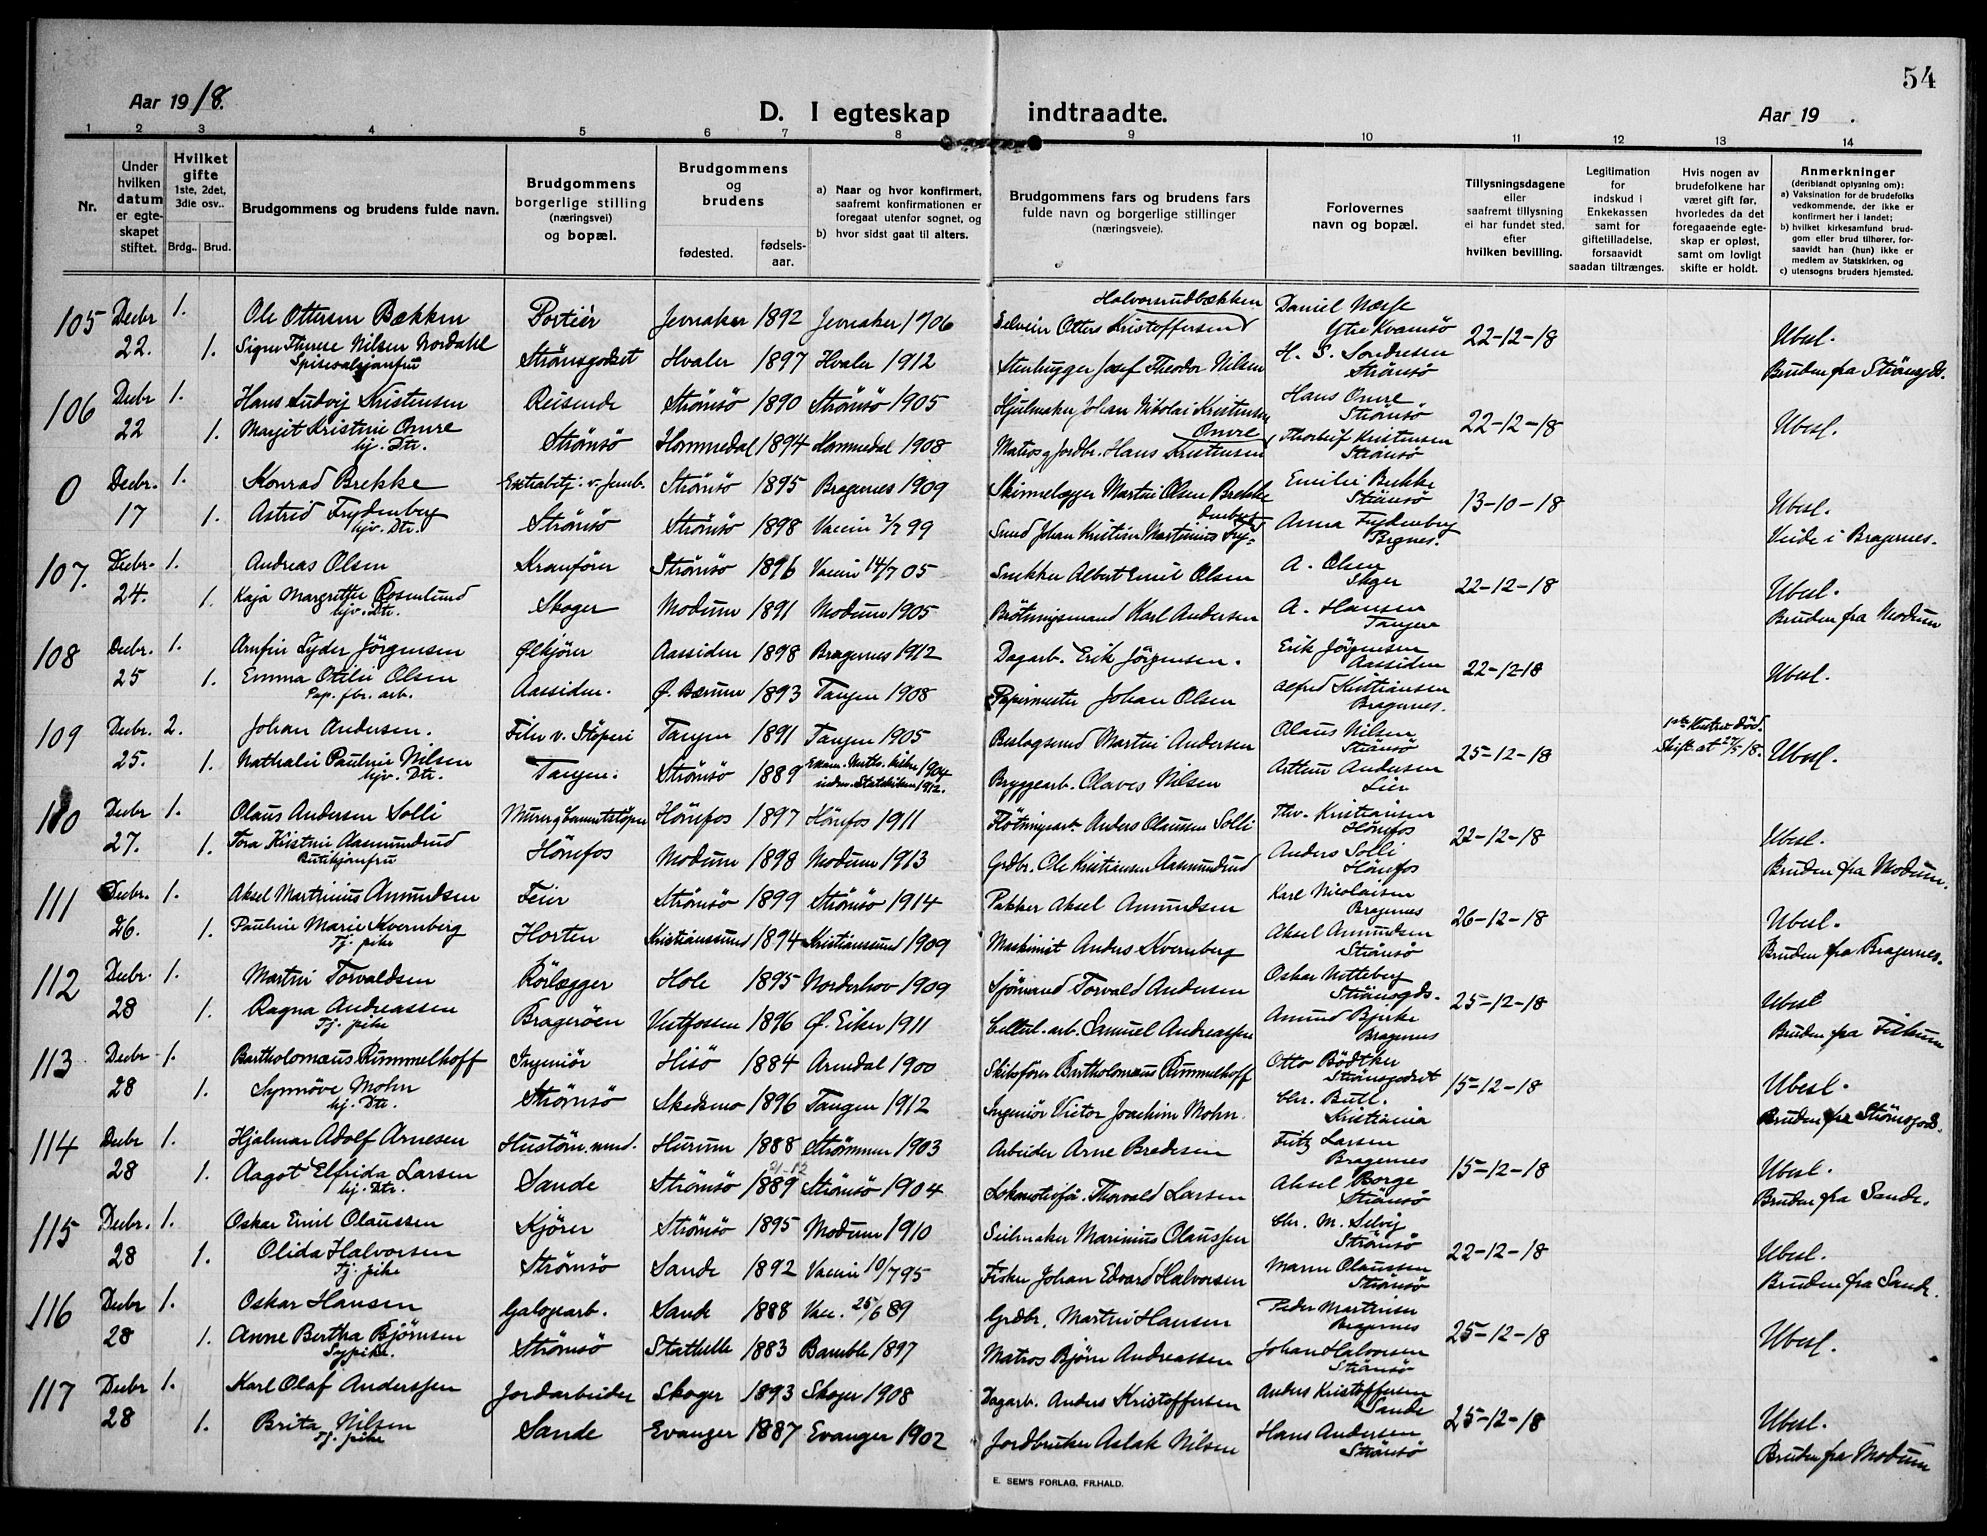 54
Aar 1918.
D. I egteskap indtraadte.
Aar 19 .
1 2 3 4 5 6 7 8 9 10 11 12 13 14
Nr.
Under hvilken datum er egteskapet stiftet.
Hvilket gifte 1ste, 2det, 3die osv..
Brdg.. Brud.
Brudgommens og brudens fulde navn.
Brudgommens borgerlige stilling (næringsvei) og bopæl.
Brudgommens og brudens
fødested. fødsels-aar.
a) Naar og hvor konfirmert, saafremt konfirmationen er foregaat utenfor sognet, og
b) hvor sidst gaat til alters.
Brudgommens fars og brudens fars fulde navn og borgerlige stillinger (næringsveie).
Forlovernes navn og bopæl.
Tillysningsdagene eller saafremt tillysning ei har fundet sted, efter hvilken bevilling.
Legitimation for indskud i Enkekassen samt for giftetilladelse, forsaavidt saadan tiltrænges.
Hvis nogen av brudefolkene har været gift før, hvorledes da det foregaaende egteskap er opløst, samt om lovligt skifte er holdt.
Anmerkninger (deriblandt oplysning om):
a) Vaksination for de brudefolks vedkommende, der ikke er konfirmert her i landet;
b) hvilket kirkesamfund brudgom eller brud tilhører, forsaavidt han (hun) ikke er medlem av Statskirken, og
c) utensogns bruders hjemsted.
105 Decbr 1. Ole Ottersen Bækken Portiér Jevnaker 1892 Jevnaker 1906 Selveier Otters Kristoffersen Halvorsrudbækken Daniel Næsse Ytre Kvamsö 22-12-18 Ubesl.
22. 1. Signe Therese Nilsen Nordahl Spisesalsjomfru Strömsgodset Hvaler 1897 Hvaler 1912 Stenhugger Josef Theodor Nilsen H. S. Sondresen Strömsö Bruden fra Strömsgds.
106 Decbr 1. Hans Ludvig Kristensen Reisende Strömsö 1890 Strömsö 1905 Hjulmaker Johan Nikolai Kristensen Hans Omre Strömsö 22-12-18 Ubesl.
22 1. Margit Kristine Omre hj. Dtr. Strömsö Hommedal 1894 Hommedal 1908 Matros g Jordbr. Hans Kristensen Omre Thorleif Kristensen Strömsö
0 Decbr. 1. Konrad Brekke Extrabetj. v. Jernb. Strömsö 1895 Bragernes 1909 Skinnelægger Martin Olsen Brekke Emilie Brekke Strömsö 13-10-18 Ubesl.
17 1. Astrid Frydenberg hjv. Dtr. Strömsö Strömsö 1898 Vaccin 2/7 99 Smed Johan Kristian Martinius Frydenberg Anna Frydenberg Brgnes. Viede i Bragernes.
107. Decbr. 1. Andreas Olsen Kranförer Strömsö 1896 Vaccin 14/7 05 Snekker Albert Emil Olsen A. Olsen Skoger 22-12-18 Ubesl.
24. 1. Kaja Margrethe Rosenlund hjv. Dtr. Skoger Modum 1891 Modum 1905 Brötningsmand Karl Andersen A. Hansen Tangen Bruden fra Modum
108 Decbr. 1. Arnfin Lyder Jörgensen Ølkjörer Aassiden 1898 Bragernes 1912 Dagarb. Erik Jörgensen. Erik Jörgensen Aassiden 22-12-18 Ubesl.
25 1. Emma Otilie Olsen Pap. fbr. arb. Aassiden. Ø. Bærum 1893 Tangen 1908 Papirmester Johan Olsen Alfred Kristiansen Bragernes.
109 Decbr. 2. Johan Andersen. Filer v. Stöperi Tangen 1891 Tangen 1905 Beslagsmed Martin Andersen Olaus Nilsen Strömsö 25-12-18 1ste Hustru död. Skift. at 27/5 18. Ubesl.
25. 1. Nathalie Pauline Nilsen hjv. Dtr. Tangen. Strömsö 1889 Exam. Meth. kirke 1904 indm. Statskirken 1912. Bryggearb. Olaves Nilsen Arthur Andersen Lier
110 Decbr 1. Olaus Andersen Solli Murer g Cementstöper Hönefos 1897 Hönefos 1911 Flötningsarb. Anders Olaussen Solli Thv. Kristiansen Hönefos 22-12-18 Ubesl.
27. 1. Tora Kristine Aasmundrud Butikjomfru Hönefos Modum 1898 Modum 1913 Grdbr. Ole Kristiansen Aasmundrud Anders Solli Hönefos Bruden fra Modum.
111 Decbr. 1. Aksel Martinius Amundsen Feier Strömsö 1899 Strömsö 1914 Pakker Aksel Amundsen Karl Nicolaisen Bragernes 26-12-18 Ubesl.
26. 1. Pauline Marie Kvernberg Tj. pike Horten Kristianssund 1894 Kristianssund 1909 Maskinist Anders Kvernberg Aksel Amundsen Strömsö Bruden fra Bragernes.
112 Decbr. 1. Martin Torvaldsen Rörlægger Hole 1895 Norderhov 1909 Sjömand Torvald Andersen Oskar Netteberg Strömsgds. 25-12-18 Ubesl
28 1. Ragna Andreassen Tj. pike Brageröen Vestfossen 1896 Ø. Eiker 1911 Cellul. arb. Samuel Andreassen Amund Bjerke Bragernes Bruden fra Fiskum
113 Decbr 1. Bartholomæus Rummelhoff Ingeniör Hisö 1884 Arendal 1900 Skibsförer Bartholomæus Rummelhoff Otto Bödtker Strömsgodset 15-12-18 Ubesl.
28 1. Synnöve Mohn hj. Dtr. Strömsö Skedsmo 1896 Tangen 1912 Ingeniör Victor Joachim Mohn. Chr. Bull. Kristiania Bruden fra Strömsgods.
114 Decbr 1. Hjalmar Adolf Arnesen Hustömmermd. Hurum 1888 Strömmen 1903 Arbeider Arne Bredesen Fritz Larsen Bragernes 15-12-18 Ubesl.
28 1. Aagot Elfrida Larsen hj. Dtr. Sande Strömsö 21-12 1889 Strömsö 1904 Lokomotivfö. Thorvald Larsen Aksel Borge Strömsö Bruden fra Sande.
115 Decbr. 1. Oskar Emil Olaussen Kjörer Strömsö 1895 Modum 1910 Seilmaker Marinius Olaussen Chr. M. Selvig Strömsö 22-12-18 Ubesl.
28 1. Olida Halvorsen Tj. pike Strömsö Sande 1892 Vaccin 10/7 95 Fisker Johan Edvard Halvorsen Maren Olaussen Strömsö Bruden fra Sande.
116 Decbr 1. Oskar Hansen Galogearb. Sande 1888 Vacc. 25/6 89 Grdbr. Martin Hansen Peder Martinsen Bragernes 25-12-18 Ubesl.
28 1. Anne Bertha Bjørnsen Sypike. Strömsö Stathelle 1883 Bamble 1897 Matros Bjørn Andreassen Johan Halvorsen Strömsö
117 Decbr 1. Karl Olaf Anderssen Jordarbeider Skoger 1893 Skoger 1908 Dagarb. Anders Kristoffersen Anders Kristoffersen Sande 25-12-18 Ubesl.
28 1. Brita Nilsen Tj. pike Sande Evanger 1887 Evanger 1902 Jordbruker Aslak Nilsen Hans Andersen Strömsö Bruden fra Modum
E. SEM'S FORLAG, FR.HALD.